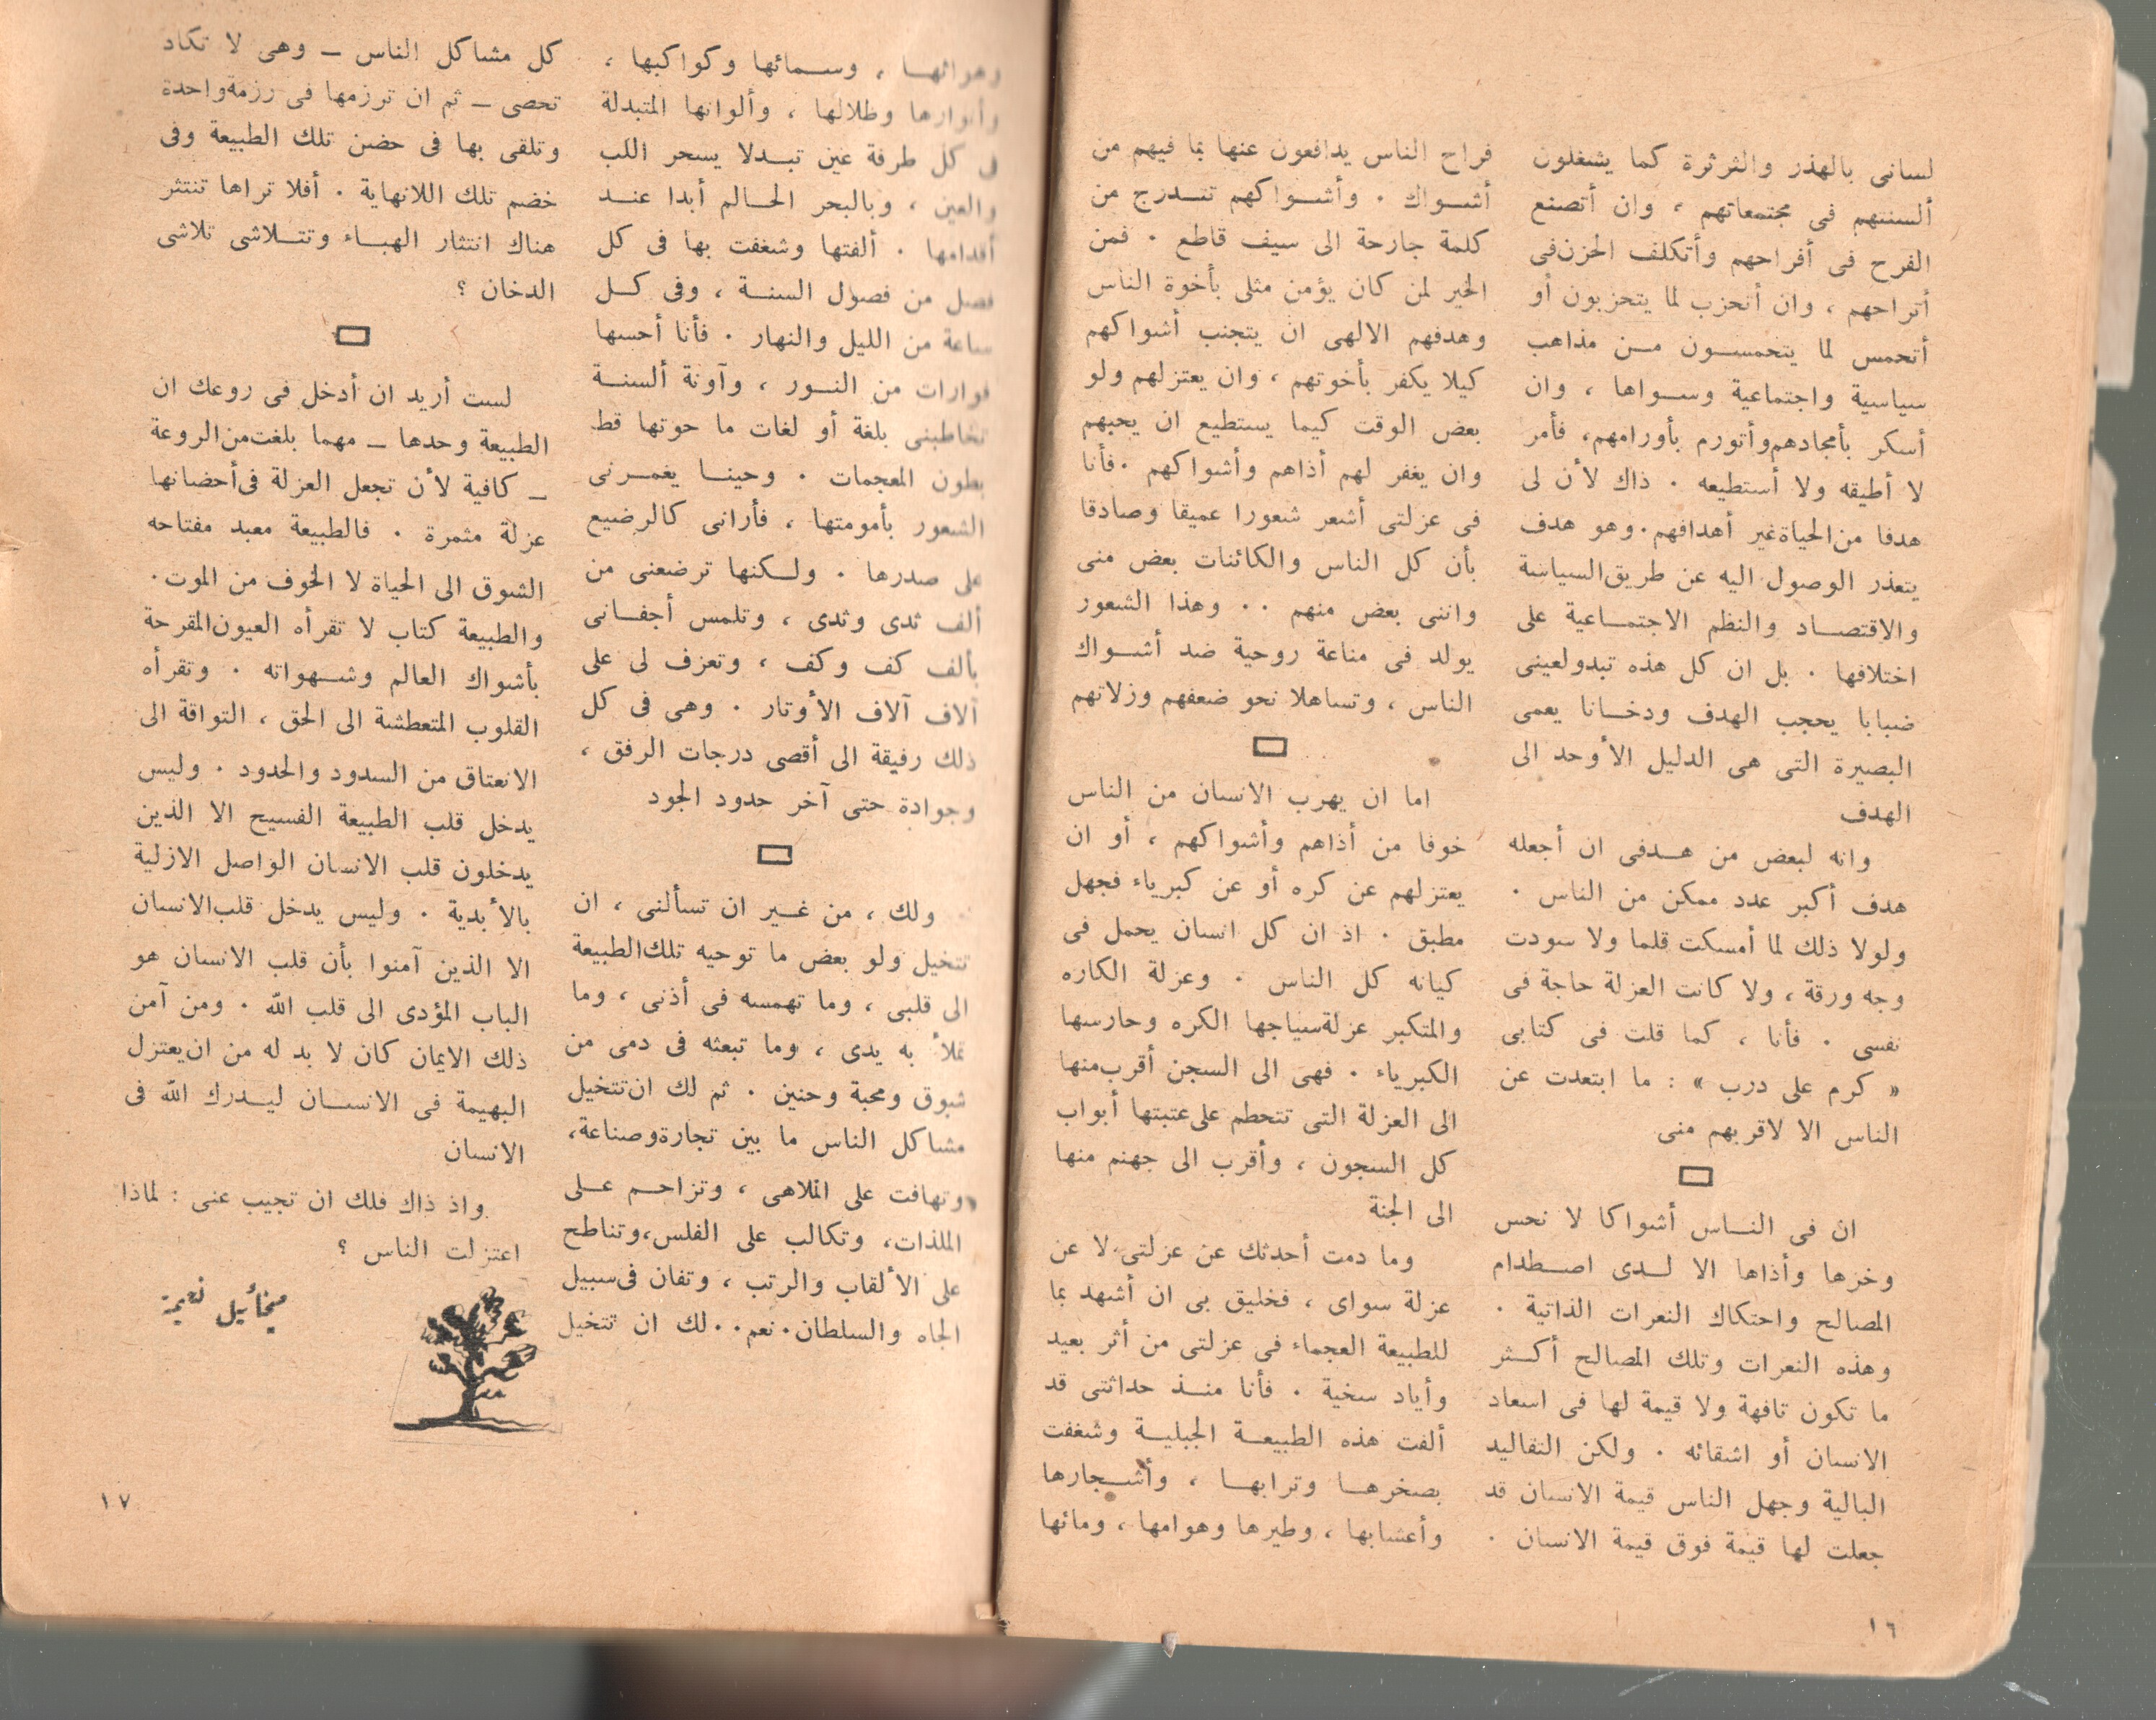 لسانى بالهذر والثرثرة كما يشغلون
ألسنتهم فى مجتمعاتهم ، وان أتصنع
الفرح فى أفراحهم وأتكلف الحزن فى
أتراحهم ، وان أتحزب لما يتحزبون أو
أتحمس لما يتحمسون من مذاهب
سياسية واجتماعية وسواها ، وان
أسكر بأمجادهم وأتورم بأورامهم، فأمر
لا أطيقه ولا أستطيعه . ذاك لأن لى
هدفا من الحياة غير أهدافهم . وهو هدف
يتعذر الوصول اليه عن طريق السياسة
والاقتصاد والنظم الاجتماعية على
اختلافها . بل ان كل هذه تبدو لعينى
ضبابا يحجب الهدف ودخانا يعمى
البصيرة التى هى الدليل الأوحد الى
الهدف
وانه لبعض من هدفى ان أجعله
هدف أكبر عدد ممكن من الناس .
ولولا ذلك لما أمسكت قلما ولا سودت
وجه ورقة ، ولا كانت العزلة حاجة فى
نفسى . فأنا ، كما قلت فى كتابى
« كرم على درب » : ما ابتعدت عن
الناس الا لاقربهم منى
ان فى الناس أشواكا لا نحس
وخزها وأذاها الا لدى اصطدام
المصالح واحتكاك النعرات الذاتية .
وهذه النعرات وتلك المصالح أكثر
ما تكون تافهة ولا قيمة لها فى اسعاد
الانسان أو اشقائه . ولكن التقاليد
البالية وجهل الناس قيمة الانسان قد
جعلت لها قيمة فوق قيمة الانسان .
فراح الناس يدافعون عنها بما فيهم من
أشواك . وأشواكهم تتدرج من
كلمة جارحة الى سيف قاطع . فمن
الخير لمن كان يؤمن مثلى بأخوة الناس
وهدفهم الالهى ان يتجنب أشواكهم
كيلا يكفر بأخوتهم ، وان يعتزلهم ولو
بعض الوقت كيما يستطيع ان يحبهم
وان يغفر لهم أذاهم وأشواكهم . فأنا
فى عزلتى أشعر شعورا عميقا وصادقا
بأن كل الناس والكائنات بعض منى
واننى بعض منهم . . وهذا الشعور
يولد فى مناعة روحية ضد أشواك
الناس ، وتساهلا نحو ضعفهم وزلاتهم
اما ان يهرب الانسان من الناس
خوفا من أذاهم وأشواكهم ، أو ان
يعتزلهم عن كره أو عن كبرياء فجهل
مطبق . اذ ان كل انسان يحمل فى
كيانه كل الناس . وعزلة الكاره
والمتكبر عزلة سياجها الكره وحارسها
الكبرياء . فهى الى السجن أقرب منها
الى العزلة التى تتحطم على عتبتها أبواب
كل السجون ، وأقرب الى جهنم منها
الى الجنة
وما دمت أحدثك عن عزلتى لا عن
عزلة سواى ، فخليق بى ان أشهد بما
للطبيعة العجماء فى عزلتى من أثر بعيد
وأياد سخية . فأنا منذ حداثتى قد
ألفت هذه الطبيعة الجبلية وشغفت
بصخرها وترابها ، وأشجارها
وأعشابها ، وطيرها وهوامها ، ومائها
١٦
وهوائها ، وسمائها وكواكبها ،
وأنوارها وظلالها ، وألوانها المتبدلة
فى كل طرفة عين تبدلا يسحر اللب
والعين ، وبالبحر الحالم أبدا عند
أقدامها . ألفتها وشغفت بها فى كل
فصل من فصول السنة ، وفى كل
ساعة من الليل والنهار . فأنا أحسها
فوارات من النور ، وآونة ألسنة
تخاطبنى بلغة أو لغات ما حوتها قط
بطون المعجمات . وحينا يغمرنى
الشعور بأمومتها ، فأرانى كالرضيع
على صدرها . ولكنها ترضعنى من
ألف ثدى وثدى ، وتلمس أجفانى
بألف كف وكف ، وتعزف لى على
آلاف آلاف الأوتار . وهى فى كل
ذلك رفيقة الى أقصى درجات الرفق ،
وجوادة حتى آخر حدود الجود
ولك ، من غير ان تسألنى ، ان
تتخيل ولو بعض ما توحيه تلك الطبيعة
الى قلبى ، وما تهمسه فى أذنى ، وما
تملأ به يدى ، وما تبعثه فى دمى من
شوق ومحبة وحنين . ثم لك ان تتخيل
مشاكل الناس ما بين تجارة وصناعة،
وتهافت على الملاهى ، وتزاحم على
الملذات، وتكالب على الفلس، وتناطح
على الألقاب والرتب ، وتفان فى سبيل
الجاه والسلطان . نعم . . لك ان تتخيل
كل مشاكل الناس – وهى لا تكاد
تحصى – ثم ان ترزمها فى رزمة واحدة
وتلقى بها فى حضن تلك الطبيعة وفى
خضم تلك اللانهاية . أفلا تراها تنتثر
هناك انتثار الهباء وتتلاشى تلاشى
الدخان ؟
لست أريد ان أدخل فى روعك ان
الطبيعة وحدها – مهما بلغت من الروعة
– كافية لأن تجعل العزلة فى أحضانها
عزلة مثمرة . فالطبيعة معبد مفتاحه
الشوق الى الحياة لا الخوف من الموت .
والطبيعة كتاب لا تقرأه العيون المقرحة
بأشواك العالم وشهواته . وتقرأه
القلوب المتعطشة الى الحق ، التواقة الى
الانعتاق من السدود والحدود . وليس
يدخل قلب الطبيعة الفسيح الا الذين
يدخلون قلب الانسان الواصل الازلية
بالأبدية . وليس يدخل قلب الانسان
الا الذين آمنوا بأن قلب الانسان هو
الباب المؤدى الى قلب الله . ومن آمن
ذلك الايمان كان لا بد له من ان يعتزل
البهيمة فى الانسان ليدرك الله فى
الانسان
واذ ذاك فلك ان تجيب عنى : لماذا
اعتزلت الناس ؟
ميخائيل نعيمة
١٧